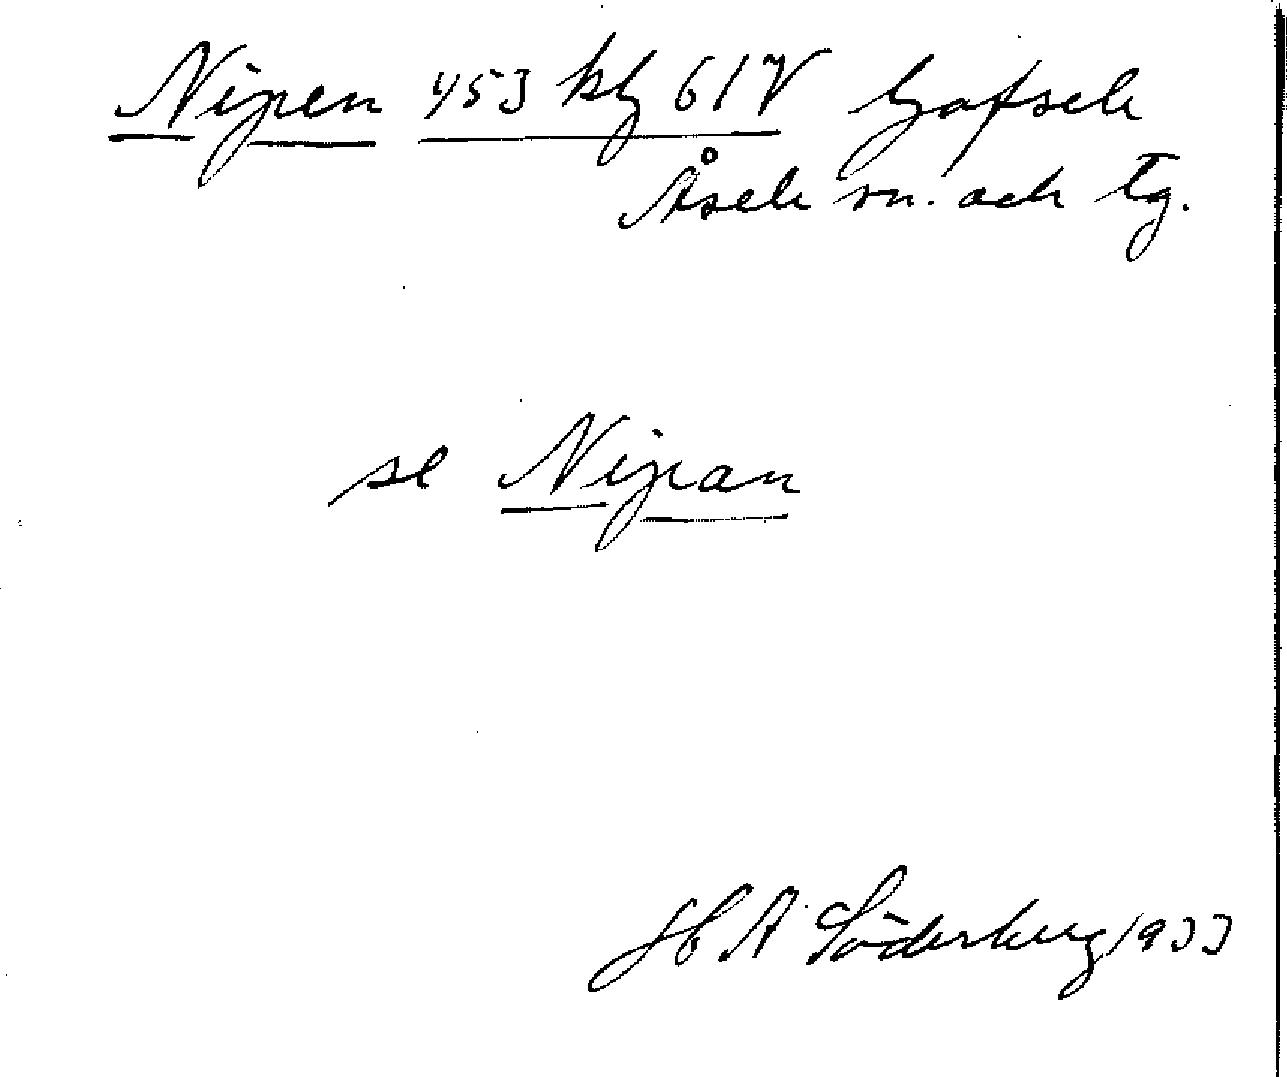 Nipen 453 kb 61V Gafsele
Åsele sn. och tg.
se Nipan
H A Söderberg 1933